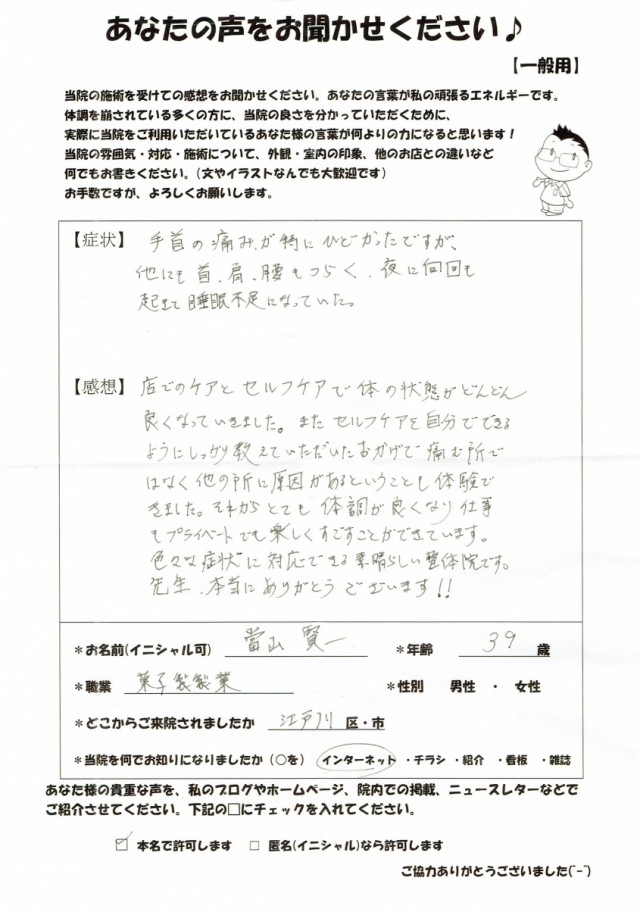 あなたの声をお聞かせください♪
【一般用】
当院の施術を受けての感想をお聞かせください。あなたの言葉が私の頑張るエネルギーです。
体調を崩されている多くの方に、当院の良さを分かっていただくために、
実際に当院をご利用いただいているあなた様の言葉が何よりの力になると思います！
当院の雰囲気・対応・施術について、外観・室内の印象、他のお店との違いなど
何でもお書きください。（文やイラストなんでも大歓迎です）
お手数ですが、よろしくお願いします。
【症状】 手首の痛みが特にひどかったですが、
他にも首、肩、腰もつらく、夜に何回も
起きて睡眠不足になっていた。
【感想】 店でのケアとセルフケアで体の状態がどんどん
良くなっていきました。またセルフケアを自分でできる
ようにしっかり教えていただいたおかげで痛む所で
はなく他の所に原因があるということも体験で
きました。それからとても体調が良くなり仕事
もプライベートでも楽しくすごすことができています。
色々な症状に対応できる素晴らしい整体院です。
先生、本当にありがとうございます!!
*お名前(イニシャル可) 當山 賢一 *年齢 39 歳
*職業 菓子製製業 *性別 男性 ・ 女性
*どこからご来院されましたか 江戸川 区・市
*当院を何でお知りになりましたか（○を） インターネット ・チラシ ・紹介 ・看板 ・雑誌
あなた様の貴重な声を、私のブログやホームページ、院内での掲載、ニュースレターなどで
ご紹介させてください。下記の□にチェックを入れてください。
☑ 本名で許可します □ 匿名(イニシャル)なら許可します
ご協力ありがとうございました(^-^)